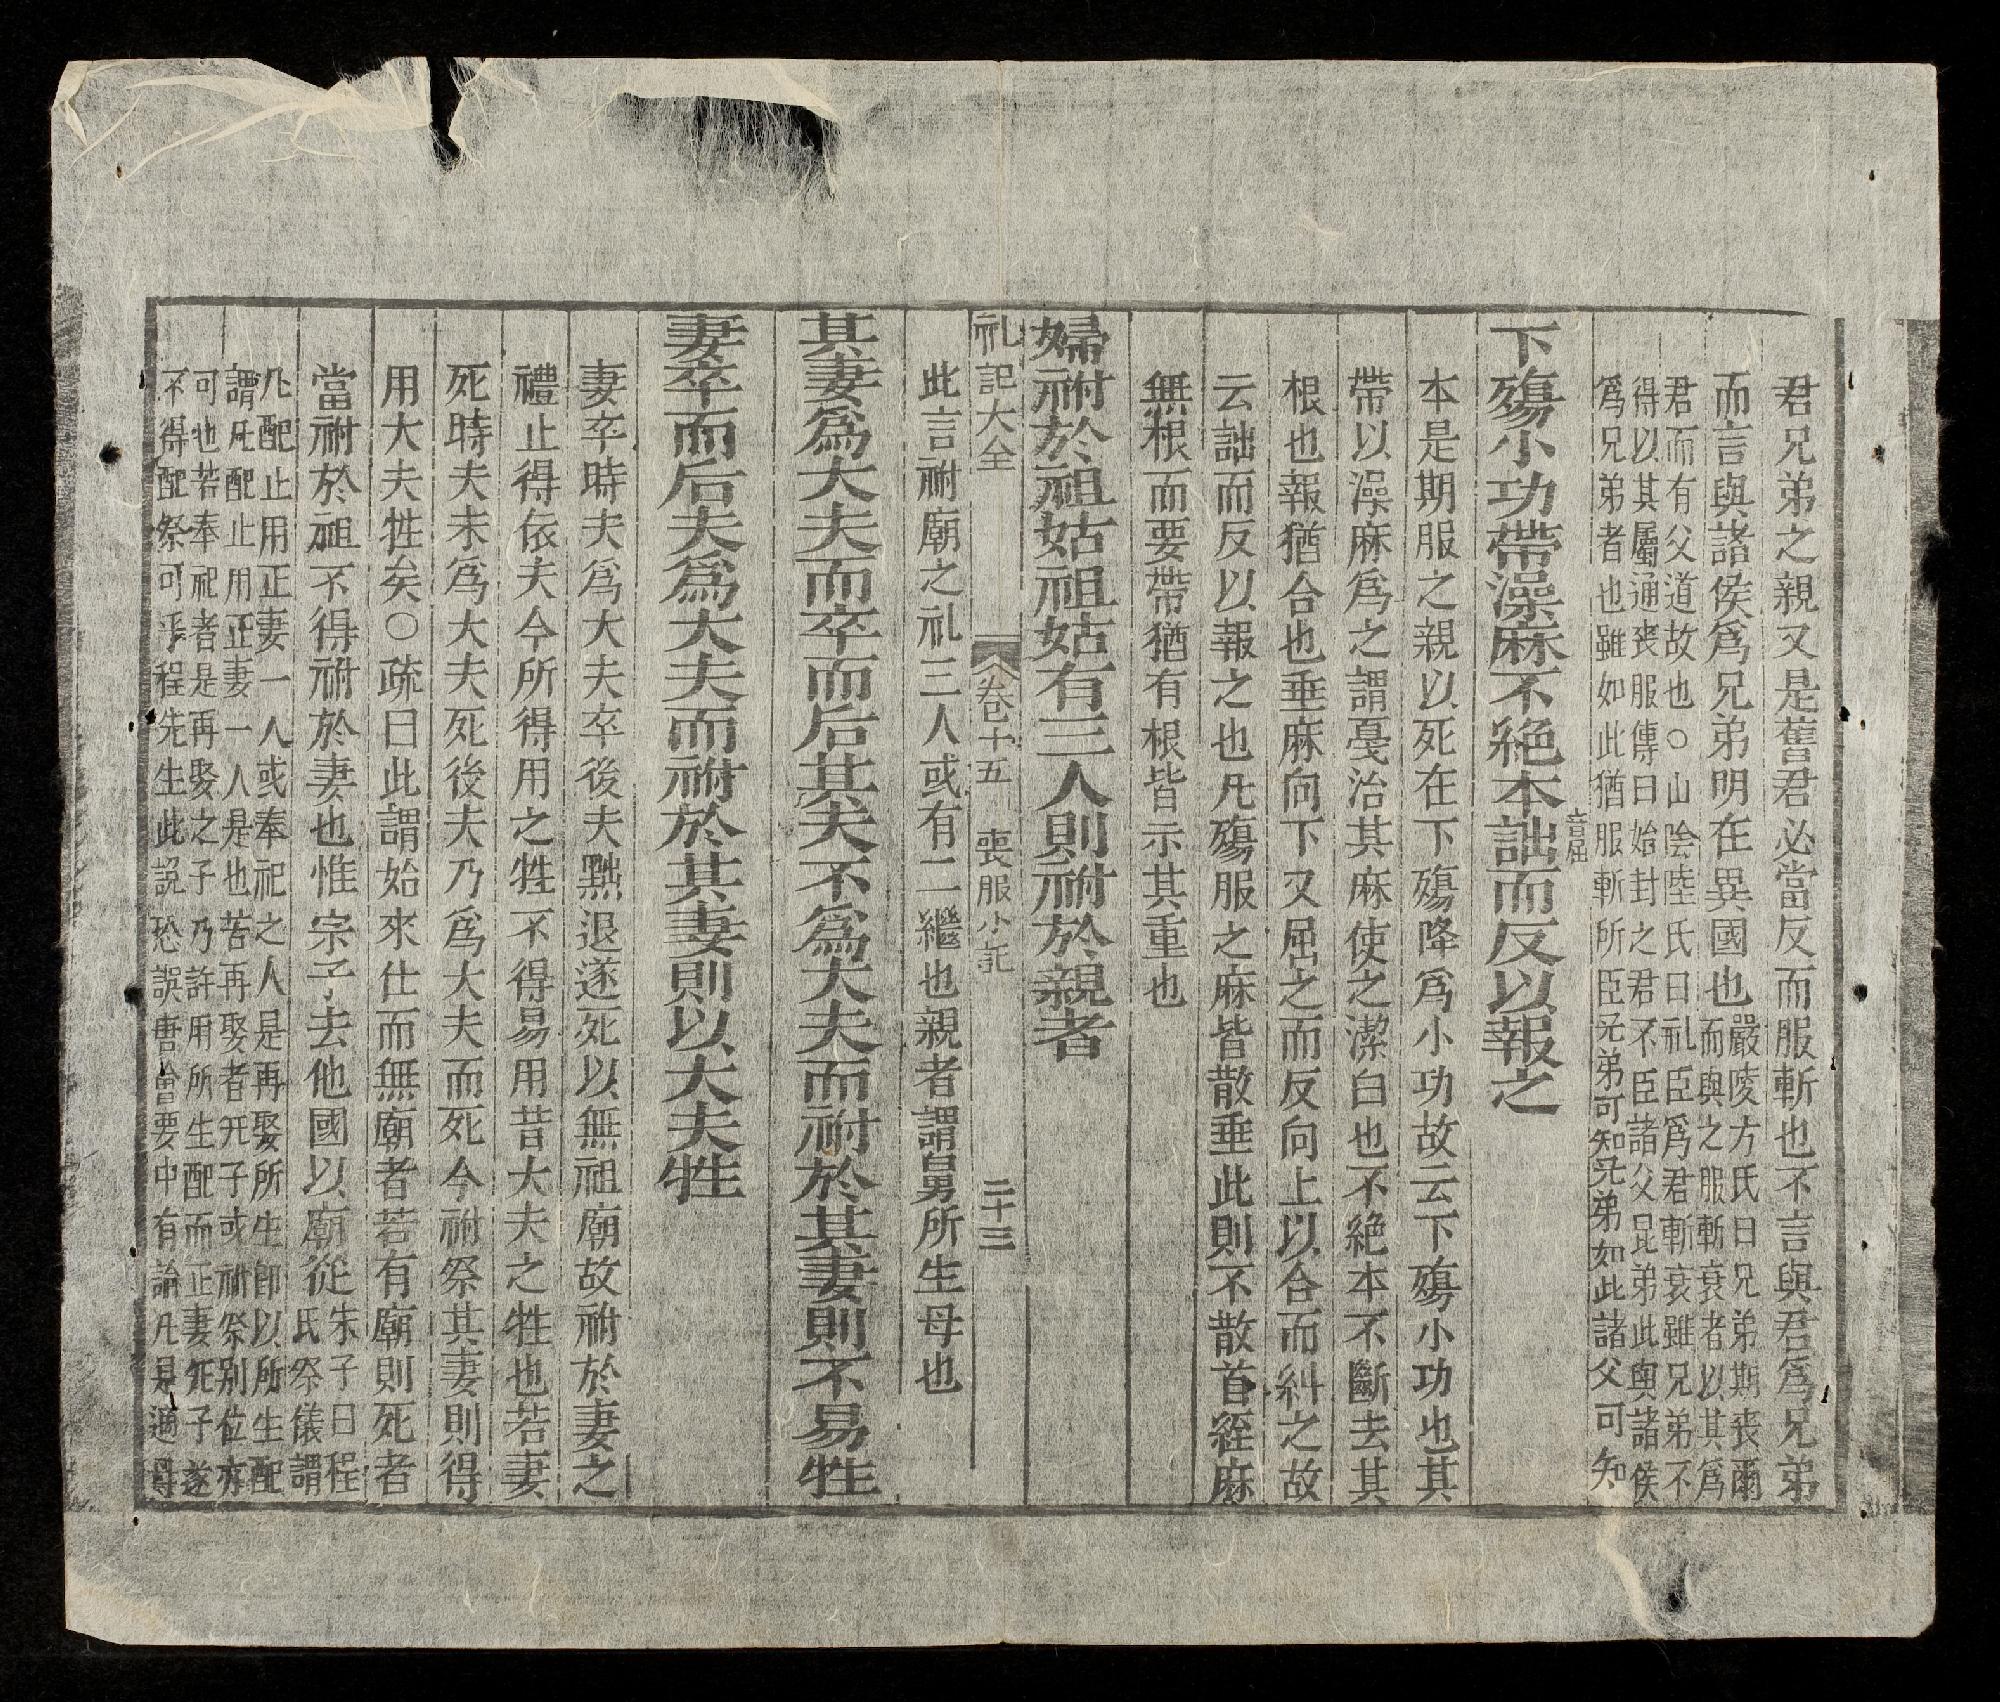 君兄弟之親又是舊君必當反而服斬也不言與君爲兄弟
而言與諸侯爲兄弟明在異國也
嚴陵方氏曰兄弟期喪爾
而與之服斬衰者以其爲
君而有父道故也○山陰陸氏曰礼臣爲君斬衰雖兄弟不
得以其屬通喪服傳曰始封之君不臣諸父昆弟此與諸侯
爲兄弟者也雖如此猶服斬所臣兄弟可知兄弟如此諸父可知
下殤小功帶澡麻不絶本詘而反以報之
音屈
本是期服之親以死在下殤降爲小功故云下殤小功也其
帶以澡麻爲之謂戞治其麻使之潔白也不絶本不斷去其
根也報猶合也垂麻向下又屈之而反向上以合而糾之故
云詘而反以報之也凡殤服之麻皆散垂此則不散首絰麻
無根而要帶猶有根皆示其重也
婦祔於祖姑祖姑有三人則祔於親者
礼記大全 卷十五 喪服小記 二十三
此言祔廟之礼三人或有二繼也親者謂舅所生母也
其妻爲大夫而卒而后其夫不爲大夫而祔於其妻則不易牲
妻卒而后夫爲大夫而祔於其妻則以大夫牲
妻卒時夫爲大夫卒後夫黜退遂死以無祖廟故祔於妻之
禮止得依夫今所得用之牲不得易用昔大夫之牲也若妻
死時夫未爲大夫死後夫乃爲大夫而死今祔祭其妻則得
用大夫牲矣○疏曰此謂始來仕而無廟者若有廟則死者
當祔於祖不得祔於妻也惟宗子去他國以廟從
朱子曰程
氏祭儀謂
凡配止用正妻一人或奉祀之人是再娶所生卽以所生配
謂凡配止用正妻一人是也若再娶者无子或祔祭別位亦
可也若奉祀者是再娶之子乃許用所生配而正妻无子遂
不得配祭可乎程先生此說恐誤唐會要中有論凡是適母